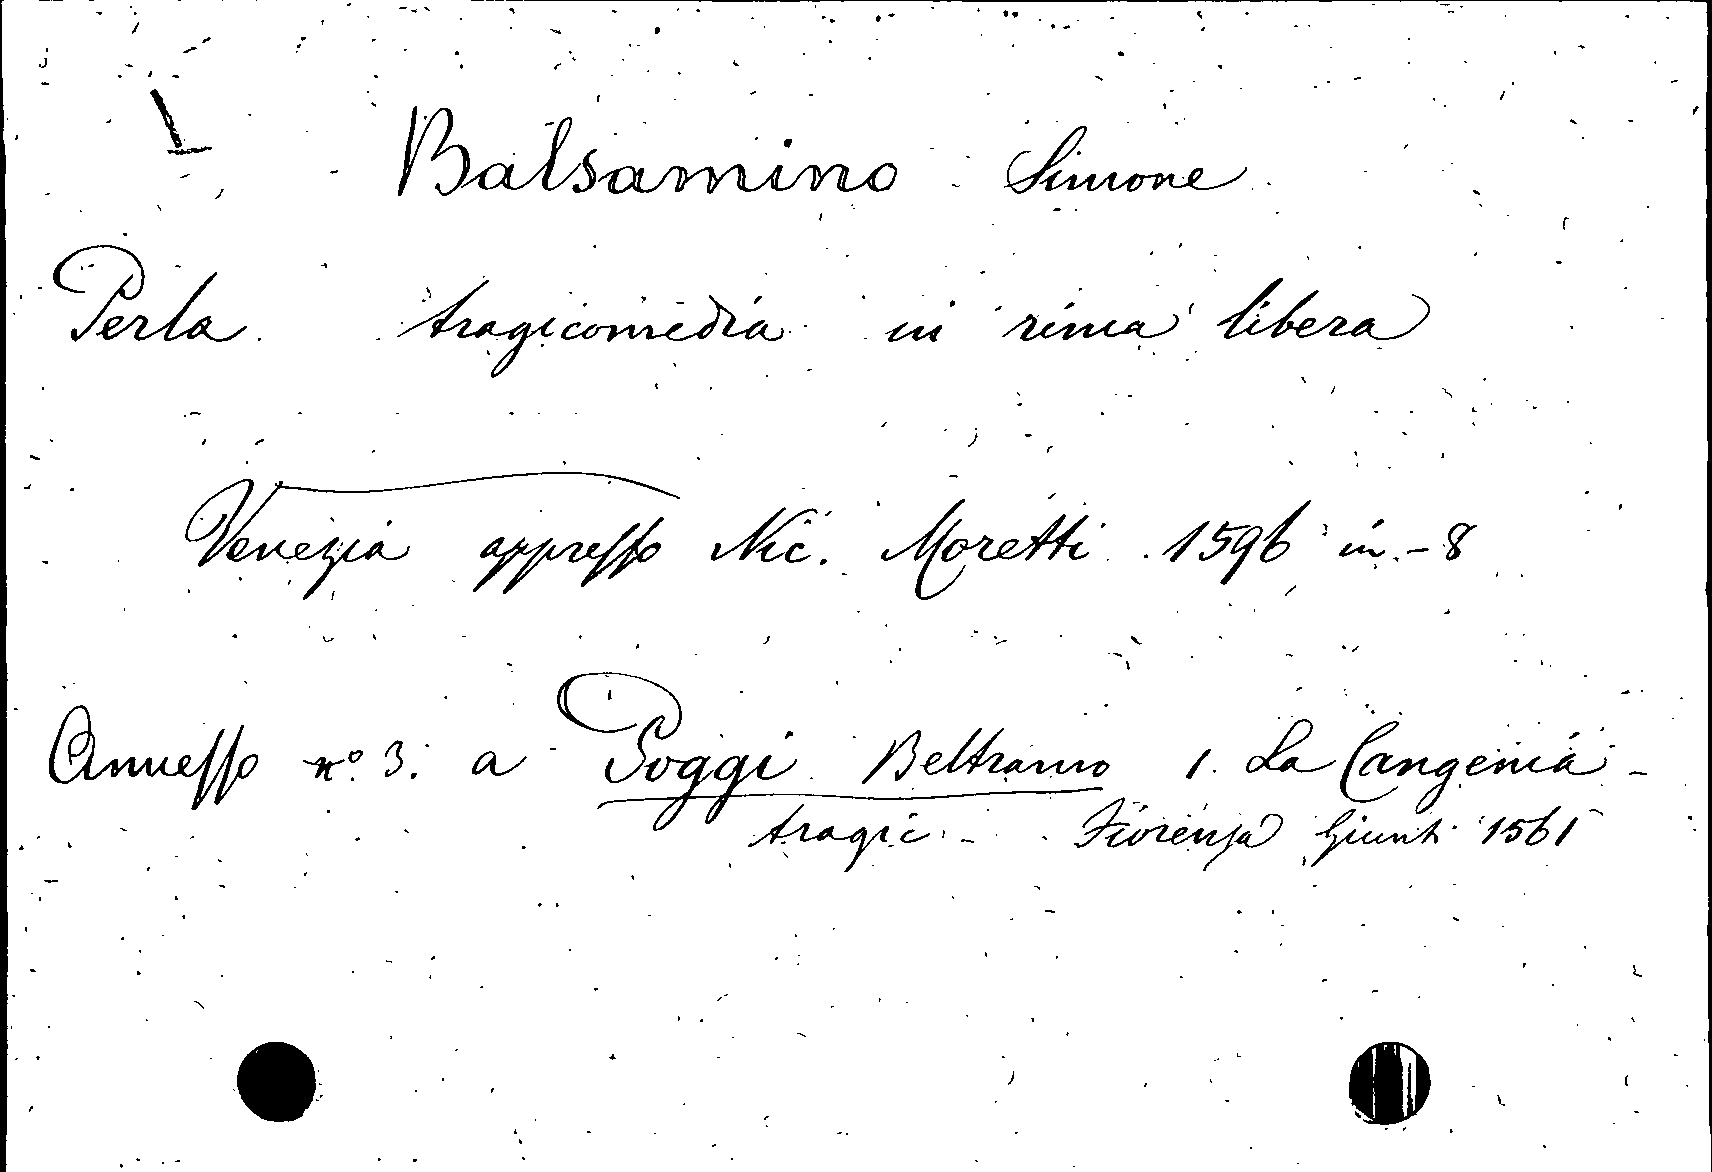 Balsamino Simone
Perla tragicomedia in rima libera
Venezia appresso Nic. Moretti 1596 in-8
Annesso n.° 3. a Poggi Beltramo 1. La Cangenia -
tragic - Fiorenza Giunti 1561